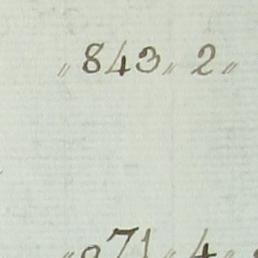 〃 843 〃 2 〃
〃 871 〃 4 〃